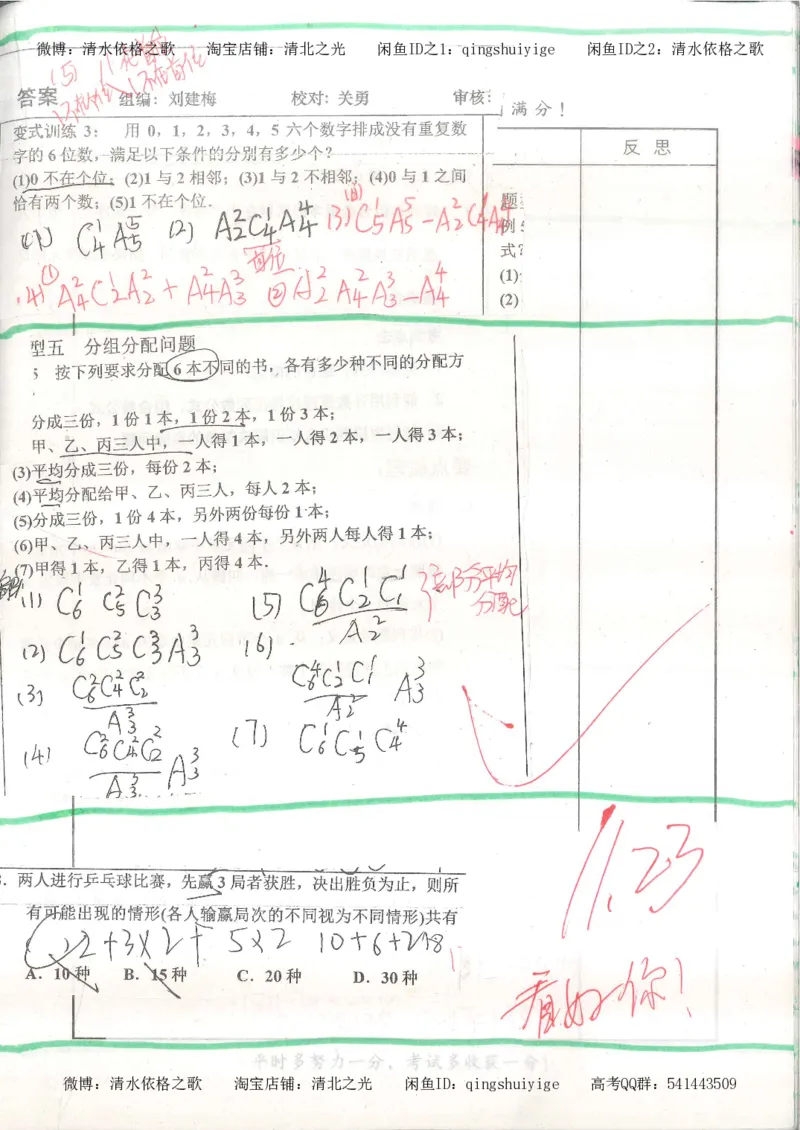 微博：清水依格之歌 淘宝店铺：清北之光 闲鱼ID之1：qingshuiyige 闲鱼ID之2：清水依格之歌
(5)
1不在个位
答案 组编：刘建梅 校对：关勇 审核：
满分！
反 思
变式训练 3： 用 0，1，2，3，4，5 六个数字排成没有重复数
字的 6 位数，满足以下条件的分别有多少个？
(1)0 不在个位；(2)1 与 2 相邻；(3)1 与 2 不相邻；(4)0 与 1 之间
恰有两个数；(5)1 不在个位．
(1) C₄¹A₅⁵ (2) A₂²C₄¹A₄⁴ (3) C₅¹A₅⁵－A₂²C₄¹A₄⁴
首位
(4) ① A₄²C₂¹A₂² + A₄²A₃³ ② A₂²A₄²A₃³－A₄⁴
题
例 5
式？
(1)
(2)
型五 分组分配问题
5 按下列要求分配 6 本不同的书，各有多少种不同的分配方
分成三份，1 份 1 本，1 份 2 本，1 份 3 本；
甲、乙、丙三人中，一人得 1 本，一人得 2 本，一人得 3 本；
(3)平均分成三份，每份 2 本；
(4)平均分配给甲、乙、丙三人，每人 2 本；
(5)分成三份，1 份 4 本，另外两份每份 1 本；
(6)甲、乙、丙三人中，一人得 4 本，另外两人每人得 1 本；
(7)甲得 1 本，乙得 1 本，丙得 4 本．
(1) C₆¹ C₅² C₃³ (5) C₆⁴C₂¹C₁¹ / A₂² 部分平均分配
(2) C₆¹C₅²C₃³A₃³ (6) C₆⁴C₂¹C₁¹ / A₂² A₃³
(3) C₆²C₄²C₂² / A₃³
(4) C₆²C₄²C₂² / A₃³ A₃³ (7) C₆¹C₅¹C₄⁴
1.23
．两人进行乒乓球比赛，先赢 3 局者获胜，决出胜负为止，则所
有可能出现的情形(各人输赢局次的不同视为不同情形)共有
2+3×2+ 5×2 10+6+2=18
A．10 种 B．15 种 C．20 种 D．30 种
看好你！
平时多努力一分，考试多收获一分！
微博：清水依格之歌 淘宝店铺：清北之光 闲鱼ID：qingshuiyige 高考QQ群：541443509